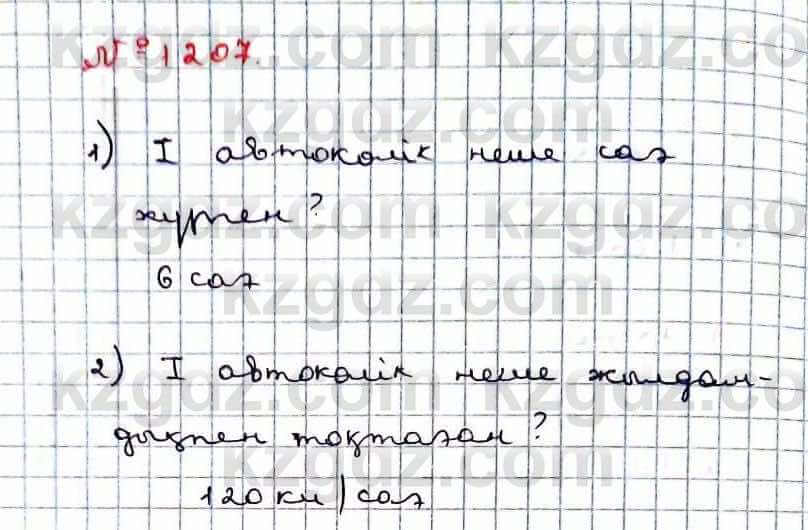 № 1207.
1) I автокөлік неше сағ
жүрген?
6 сағ
2) I автокөлік неше жылдам-
дықпен тоқтаған?
120 км/сағ
kzgdz.com